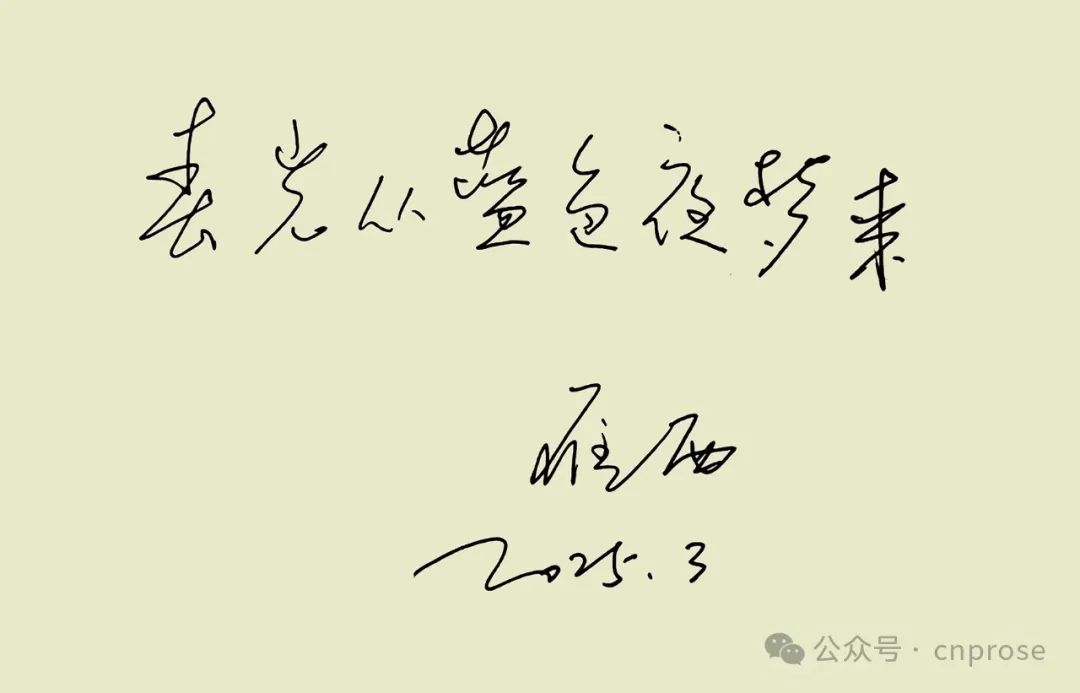 春光从蓝色夜梦来
雁西
2025.3
公众号· cnprose